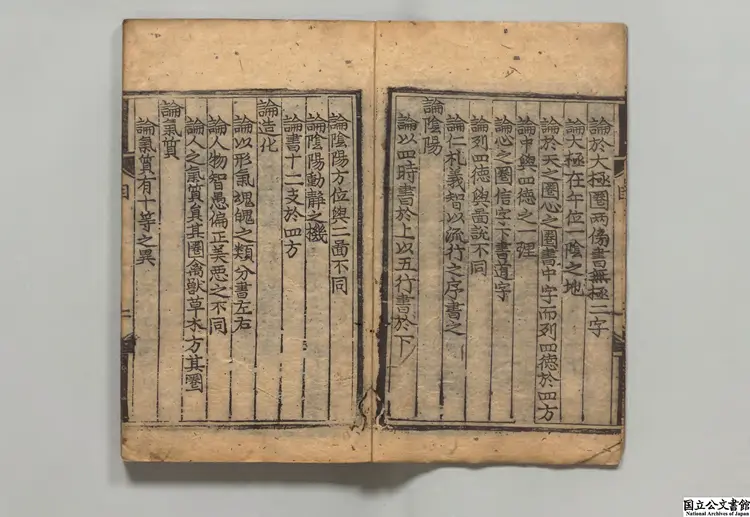 論於大極圈兩傍書無極二字
論大極在午位一陰之地
論於天之圈心之圈書中字而列四德於四方
論中與四德之一理
論心之圈信空下書道字
論列四德與啚說不同
論仁礼義智以流行之序書之
論陰陽
論以四時書於上以五行書於下
論陰陽方位與二啚不同
論陰陽動靜之機
論書十二支於四方
論造化
論以形氣魂魄之類分書左右
論人物智愚偏正美惡之不同
論人之氣質負其圈禽獸草木方其圈
論氣質
論氣質有十等之異
目
二
国立公文書館
National Archives of Japan